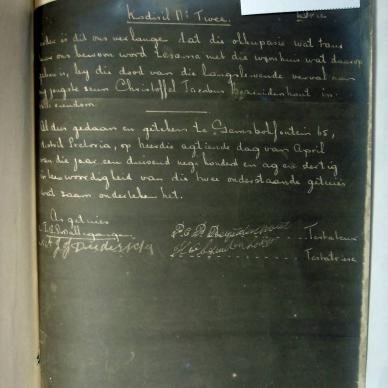 Kodisil No. Twee.
is dit ons verlange dat die okkupasie wat tans
ons bewoon word tesame met die woonhuis wat daarop
is, by die dood van die langslewende verval aan
jongste seun Christoffel Jacobus Bezuidenhout in
volle eiendom.
Aldus gedaan en geteken te 65,
distrik Pretoria, op hierdie agtiende dag van April
van die jaar een duisend nege honderd en ag en dertig
in teenwoordigheid van die twee onderstaande getuies
wat saam onderteken het.
As getuies
Testateur
Testatriese